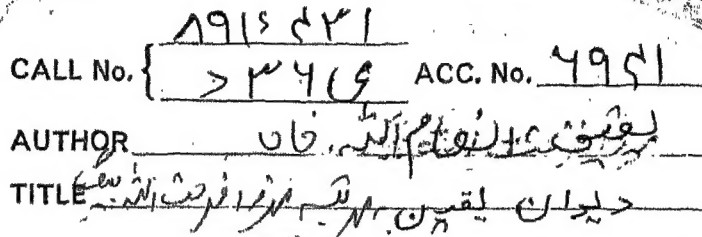 ۸۹۱ء۴۳۱
CALL No. { ی۳۶د ACC. No. ۶۹۴۱
AUTHOR یقین، انعام اللہ خاں
TITLE دیوان یقین مرتبہ مرزا فرحت اللہ بیگ